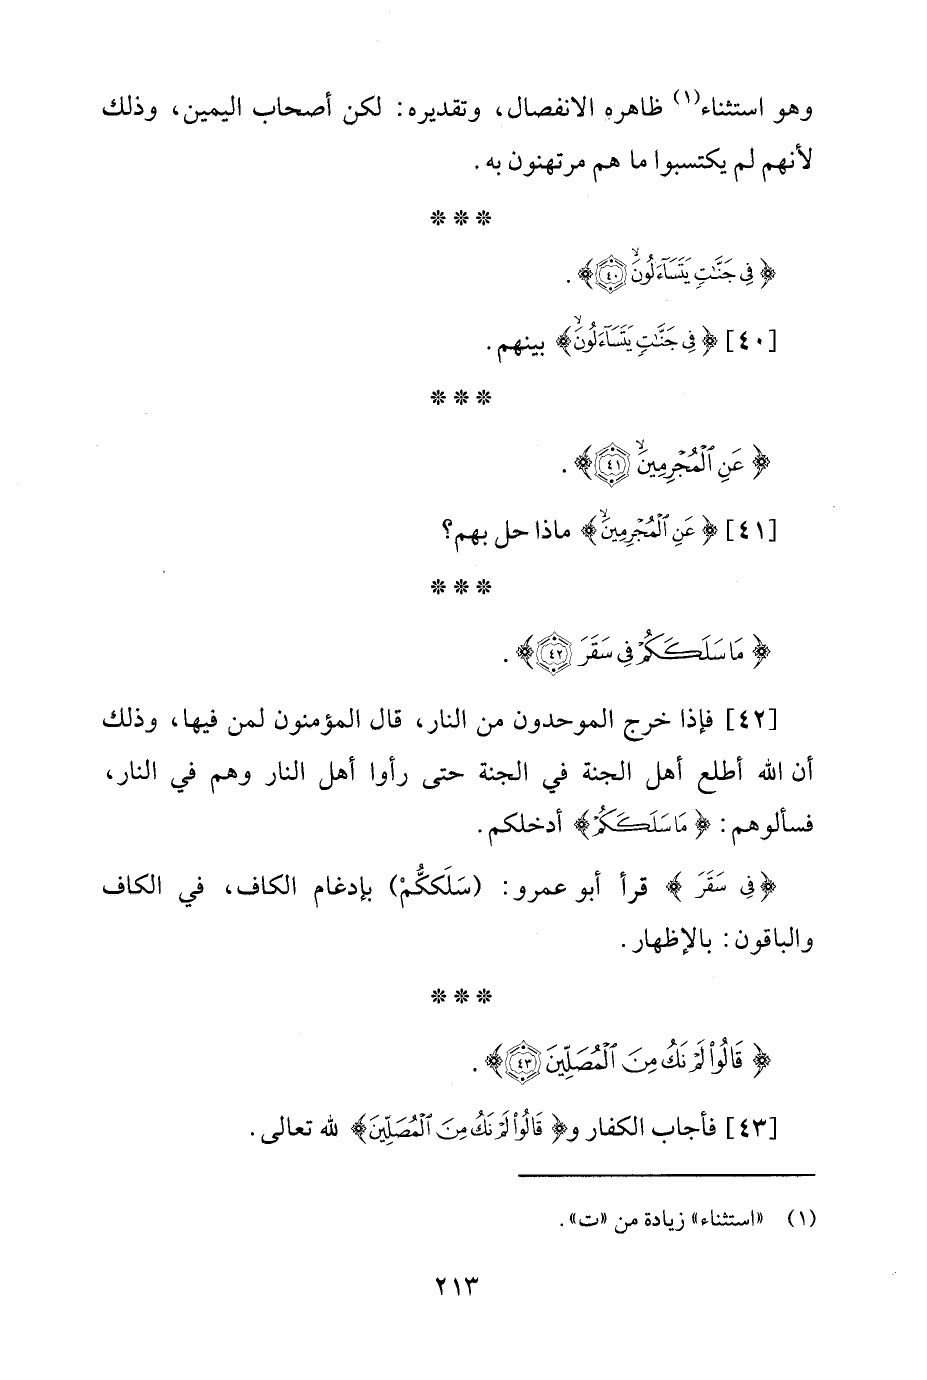 وهو استثناء(١) ظاهره الانفصال، وتقديره: لكن أصحاب اليمين، وذلك
لأنهم لم يكتسبوا ما هم مرتهنون به.
* * *
﴿ فِي جَنَّٰتٖ يَتَسَآءَلُونَۙ ٤٠﴾.
[٤٠] ﴿ فِي جَنَّٰتٖ يَتَسَآءَلُونَۙ﴾ بينهم.
* * *
﴿ عَنِ ٱلْمُجْرِمِينَۙ ٤١﴾.
[٤١] ﴿ عَنِ ٱلْمُجْرِمِينَۙ﴾ ماذا حل بهم؟
* * *
﴿ مَا سَلَكَكُمْ فِي سَقَرَ ٤٢﴾.
[٤٢] فإذا خرج الموحدون من النار، قال المؤمنون لمن فيها، وذلك
أن الله أطلع أهل الجنة في الجنة حتى رأوا أهل النار وهم في النار،
فسألوهم: ﴿ مَا سَلَكَكُمْ﴾ أدخلكم.
﴿فِي سَقَرَ ﴾ قرأ أبو عمرو: (سَلَككُّمْ) بإدغام الكاف، في الكاف
والباقون: بالإظهار.
* * *
﴿ قَالُوا۟ لَمْ نَكُ مِنَ ٱلْمُصَلِّينَ ٤٣﴾.
[٤٣] فأجاب الكفار و﴿ قَالُوا۟ لَمْ نَكُ مِنَ ٱلْمُصَلِّينَ﴾ لله تعالى.
(١) «استثناء» زيادة من «ت».
٢١٣